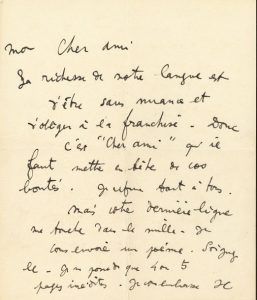 mon Cher ami
La richesse de notre langue est
d'être sans nuance et
d'obliger à la franchise. Donc
c'est "Cher ami" qu'il
faut mettre en tête de vos
bontés.
mais votre dernière ligne
me touche dans le mille. Je
vous envoie un poème. Soignez
le. Je ne possède que 4 ou 5
pages inédites. Je vous embrasse